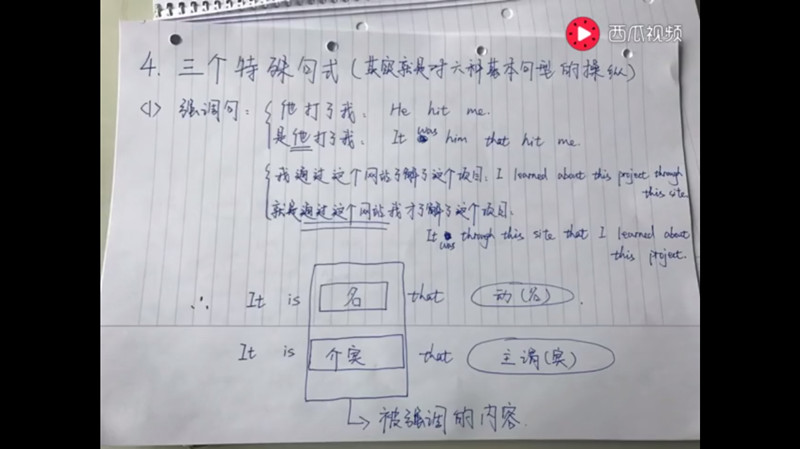 西瓜视频
4. 三个特殊句式 (其实就是对六种基本句型的操纵)
<1> 强调句: { 他打了我. He hit me.
是他打了我. It was him that hit me.
{ 我通过这个网站了解了这个项目. I learned about this project through
this site.
就是通过这个网站我才了解了这个项目.
It was through this site that I learned about
this project.
∴ It is 名 that 动(名).
It is 介宾 that 主谓(宾)
被强调的内容.